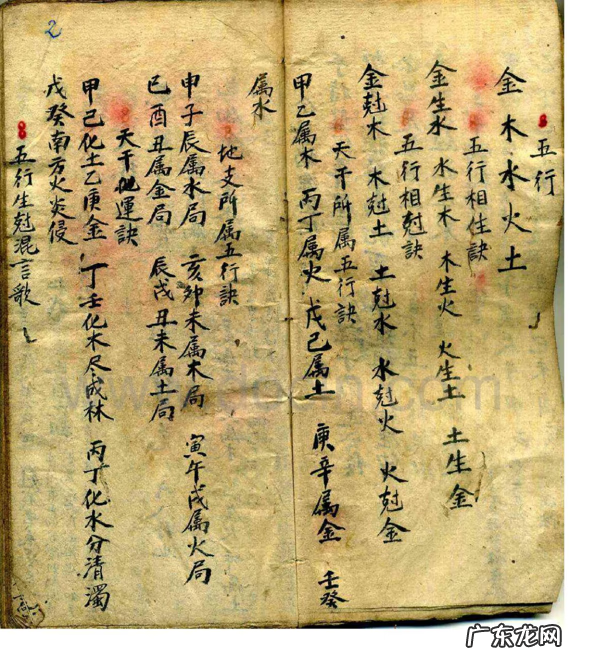 五行
金木水火土
五行相住訣
金生水 水生木 木生火 火生土 土生金
五行相尅訣
金尅木 木尅土 土尅水 水尅火 火尅金
天干所属五行訣
甲乙属木 丙丁属火 戊己属土 庚辛属金 壬癸
属水
地支所属五行訣
申子辰属水局 亥卯未属木局 寅午戌属火局
巳酉丑属金局 辰戌丑未属土局
天干化運訣
甲己化土乙庚金 丁壬化木尽成林 丙丁化水分清濁
戊癸南方火炎侵
五行生尅混言歌
2
广东龙网